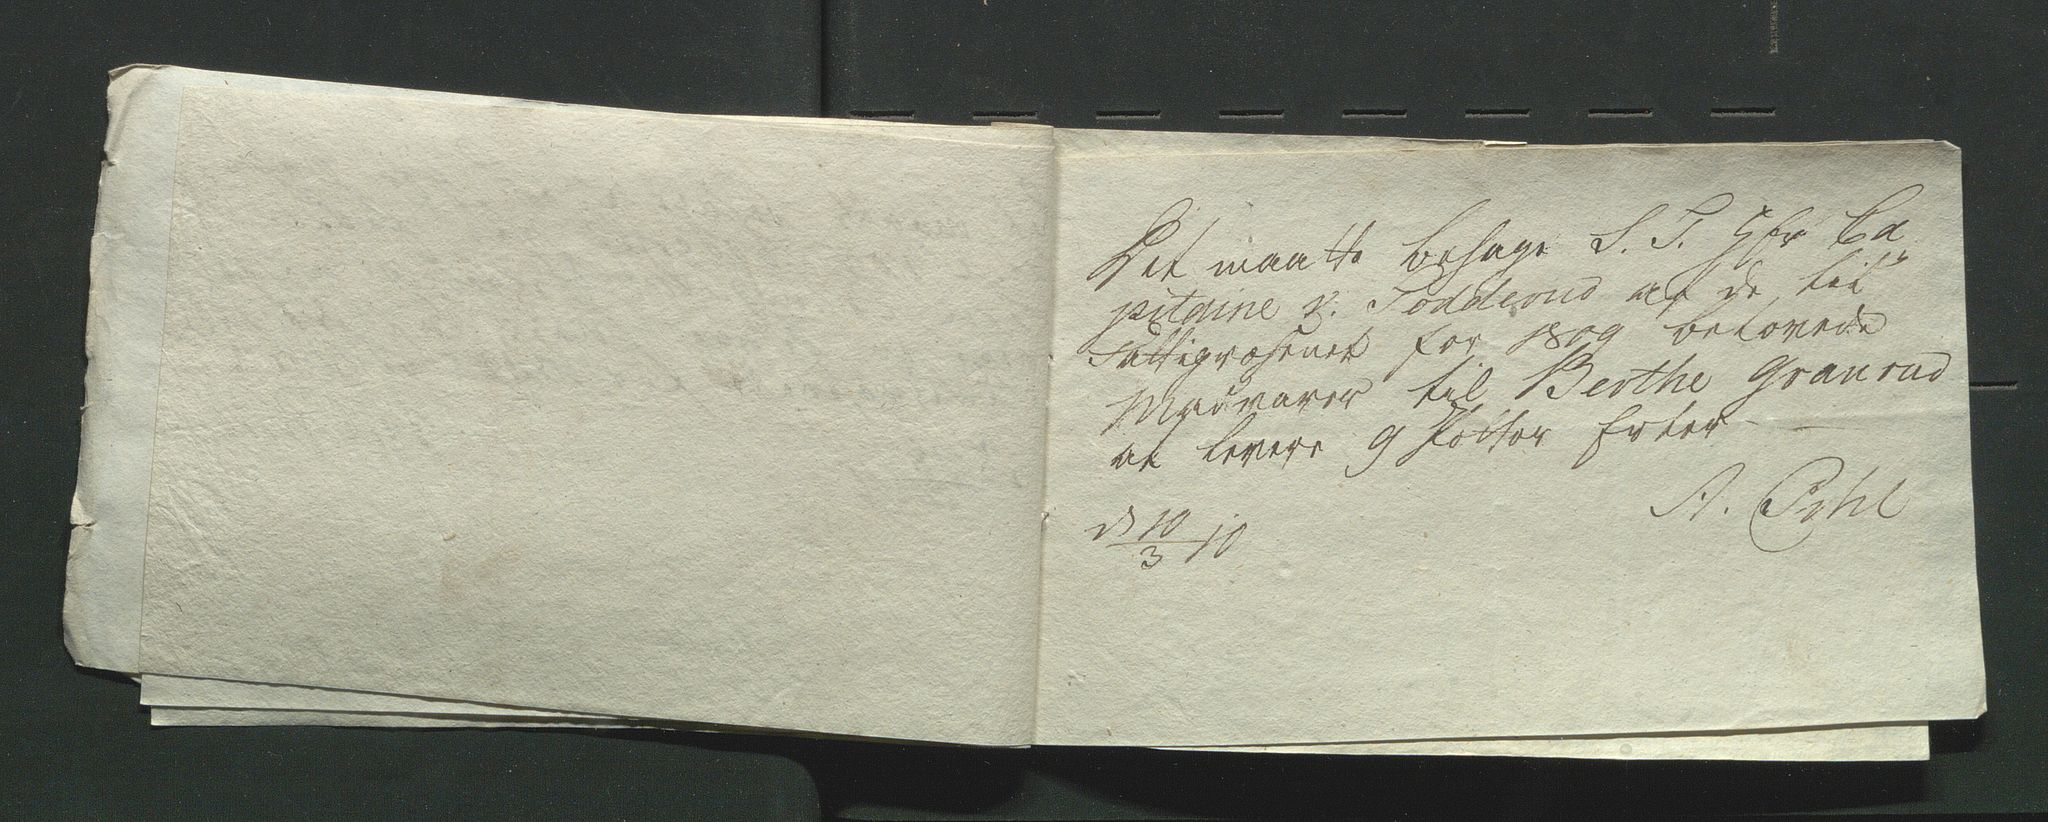 Det maatte behage S. T. Hr Ca
pitaine v. Todderud at de, til
Fattigvæsenet for 1809 belovede
Madvarer til Berthe Granrud
at levere 9 Potter Erter
A. Pihl
d 10/3 10